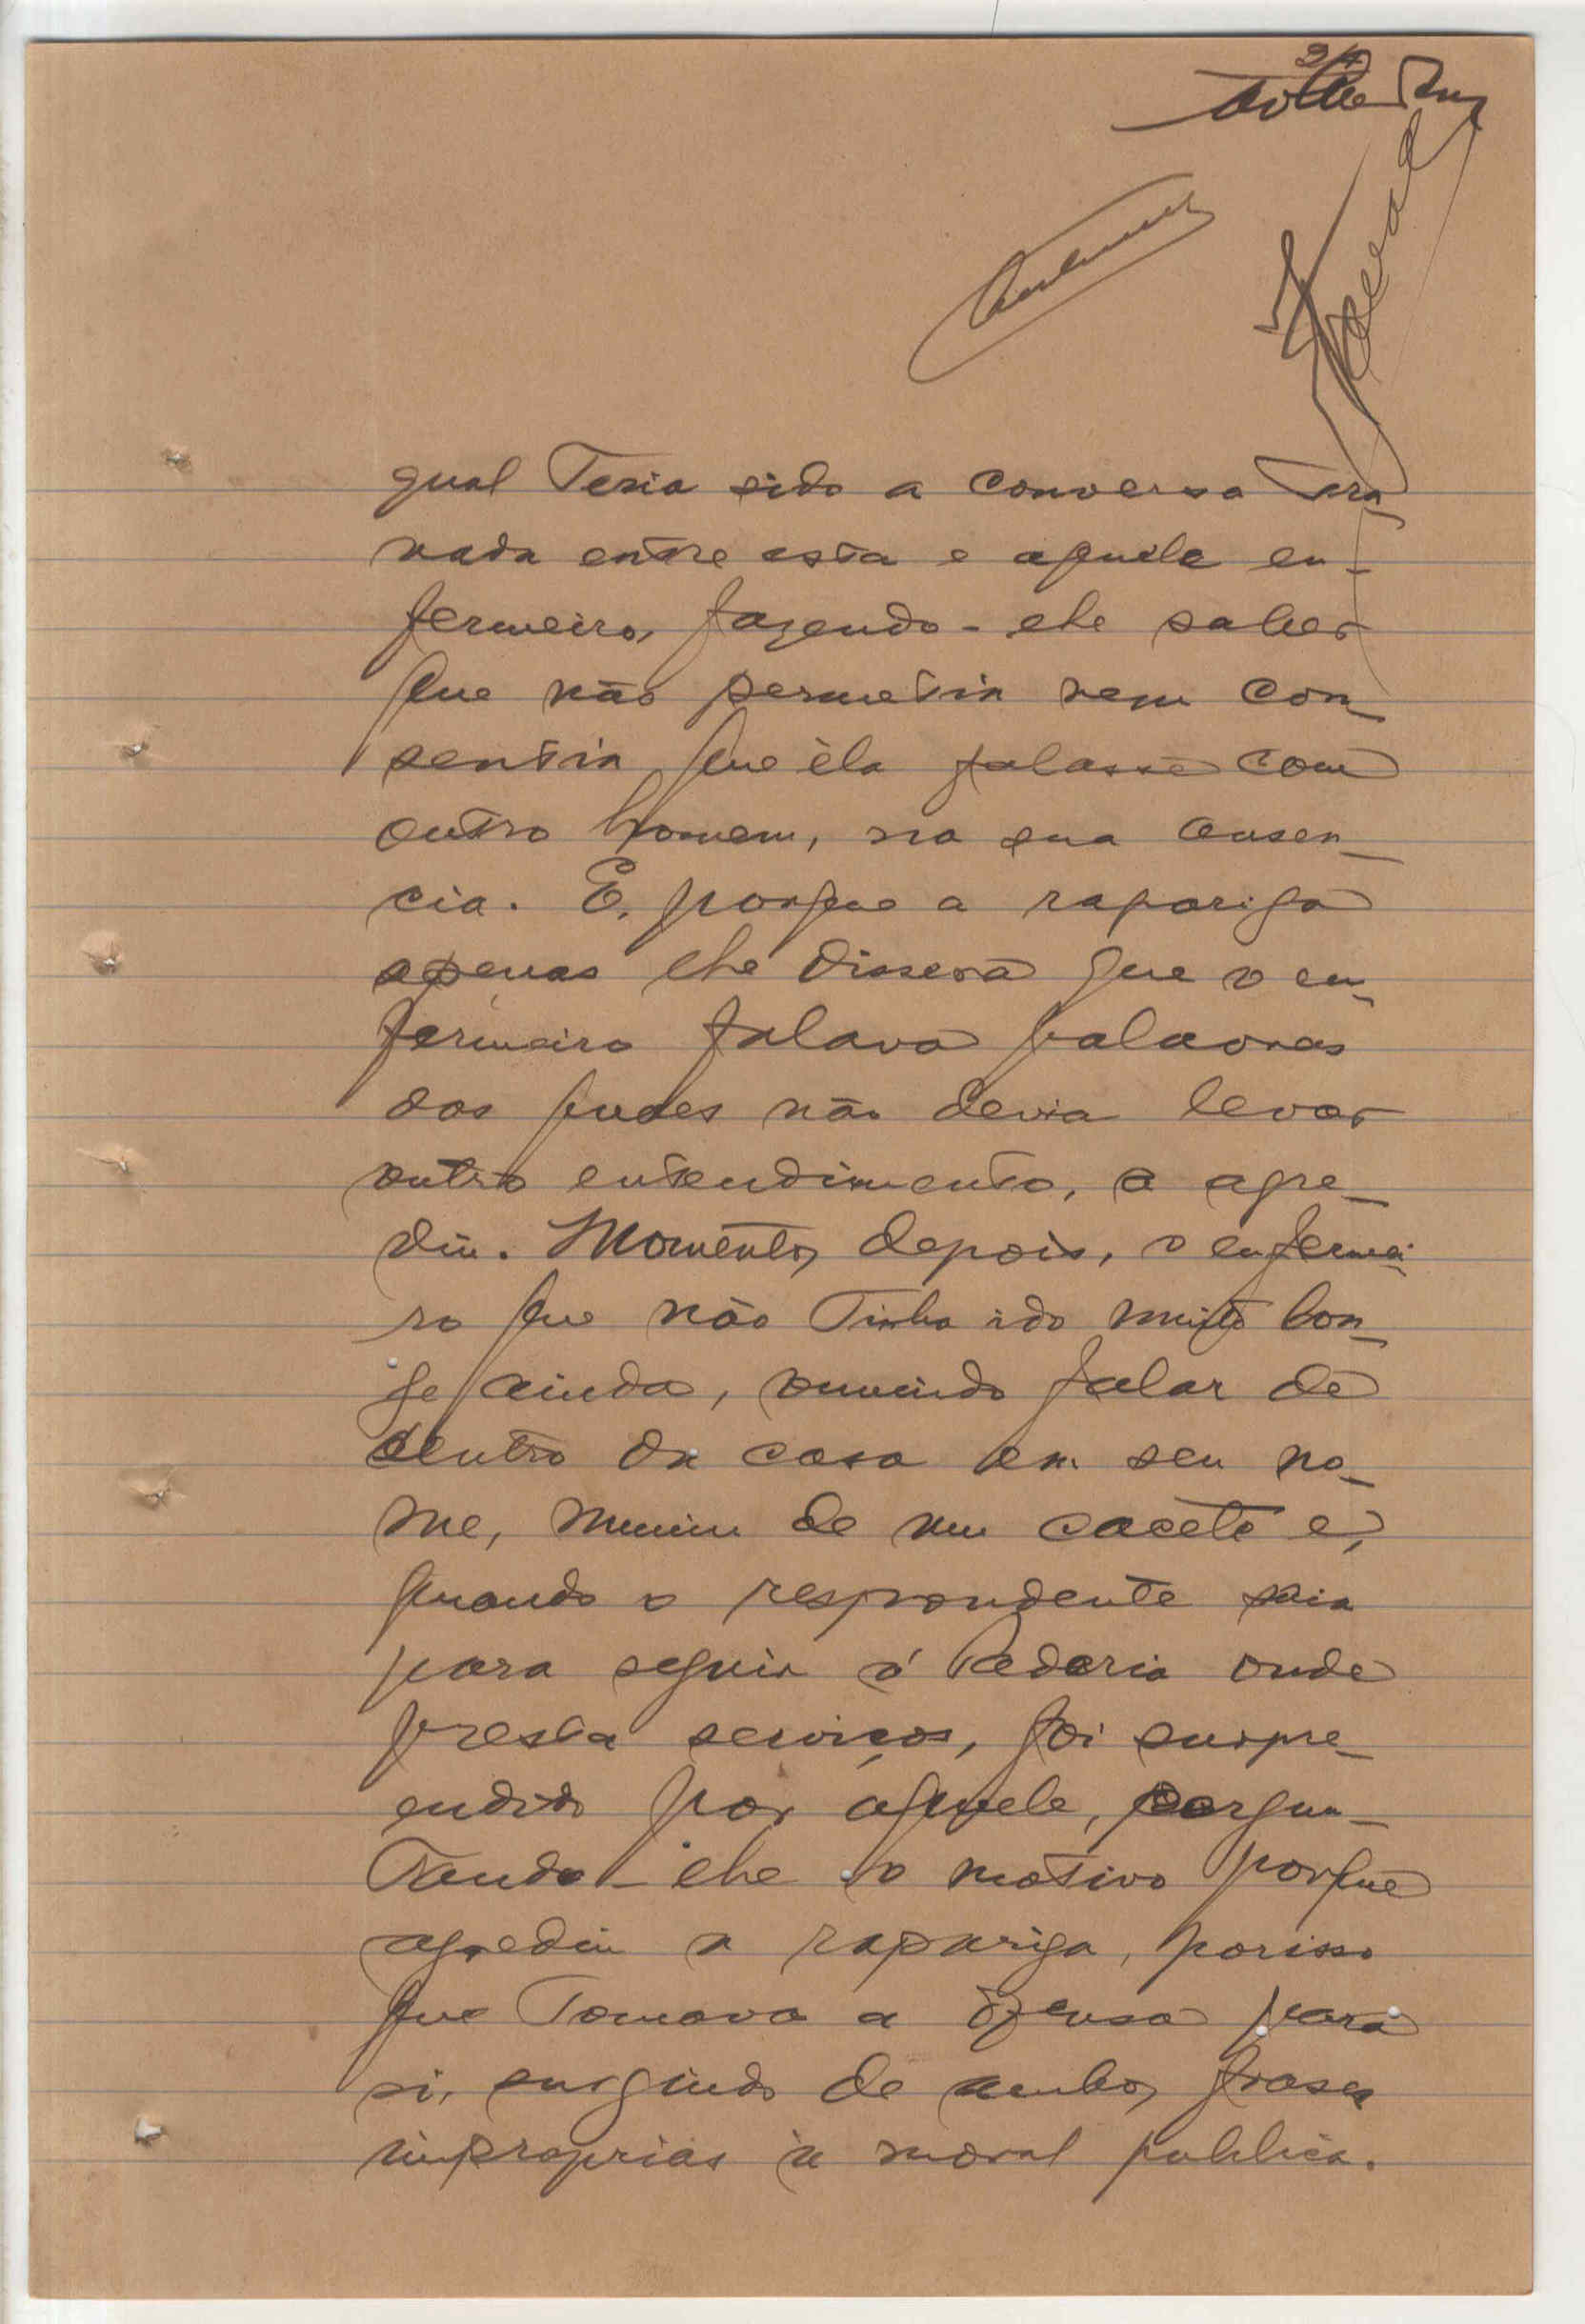 24
qual Teria sido a conversa tra-
vada entre esta e aquele en-
fermeiro, fazendo-lhe saber
que não permetia nem con-
sentia que éla falasse com
outro homem, na sua ausen-
cia. E, porque a rapariga
apenas lhe dissera que o en-
fermeiro falava palavras
das quaes não devia levar
outro entendimento, a agre-
diu. Momentos depois, o enfermei-
ro que não Tinha ido muito lon-
ge ainda, ouvindo falar de
dentro da casa em seu no-
me, muniu de um cacête e,
quando o respondente saia
para seguir á Padaria onde
presta serviços, foi surpre-
endido por aquele, pergun-
Tando-lhe o motivo porque
agrediu a rapariga, porisso
que Tomava a ofensa para
si, surgindo de ambos frases
improprias à moral publica.